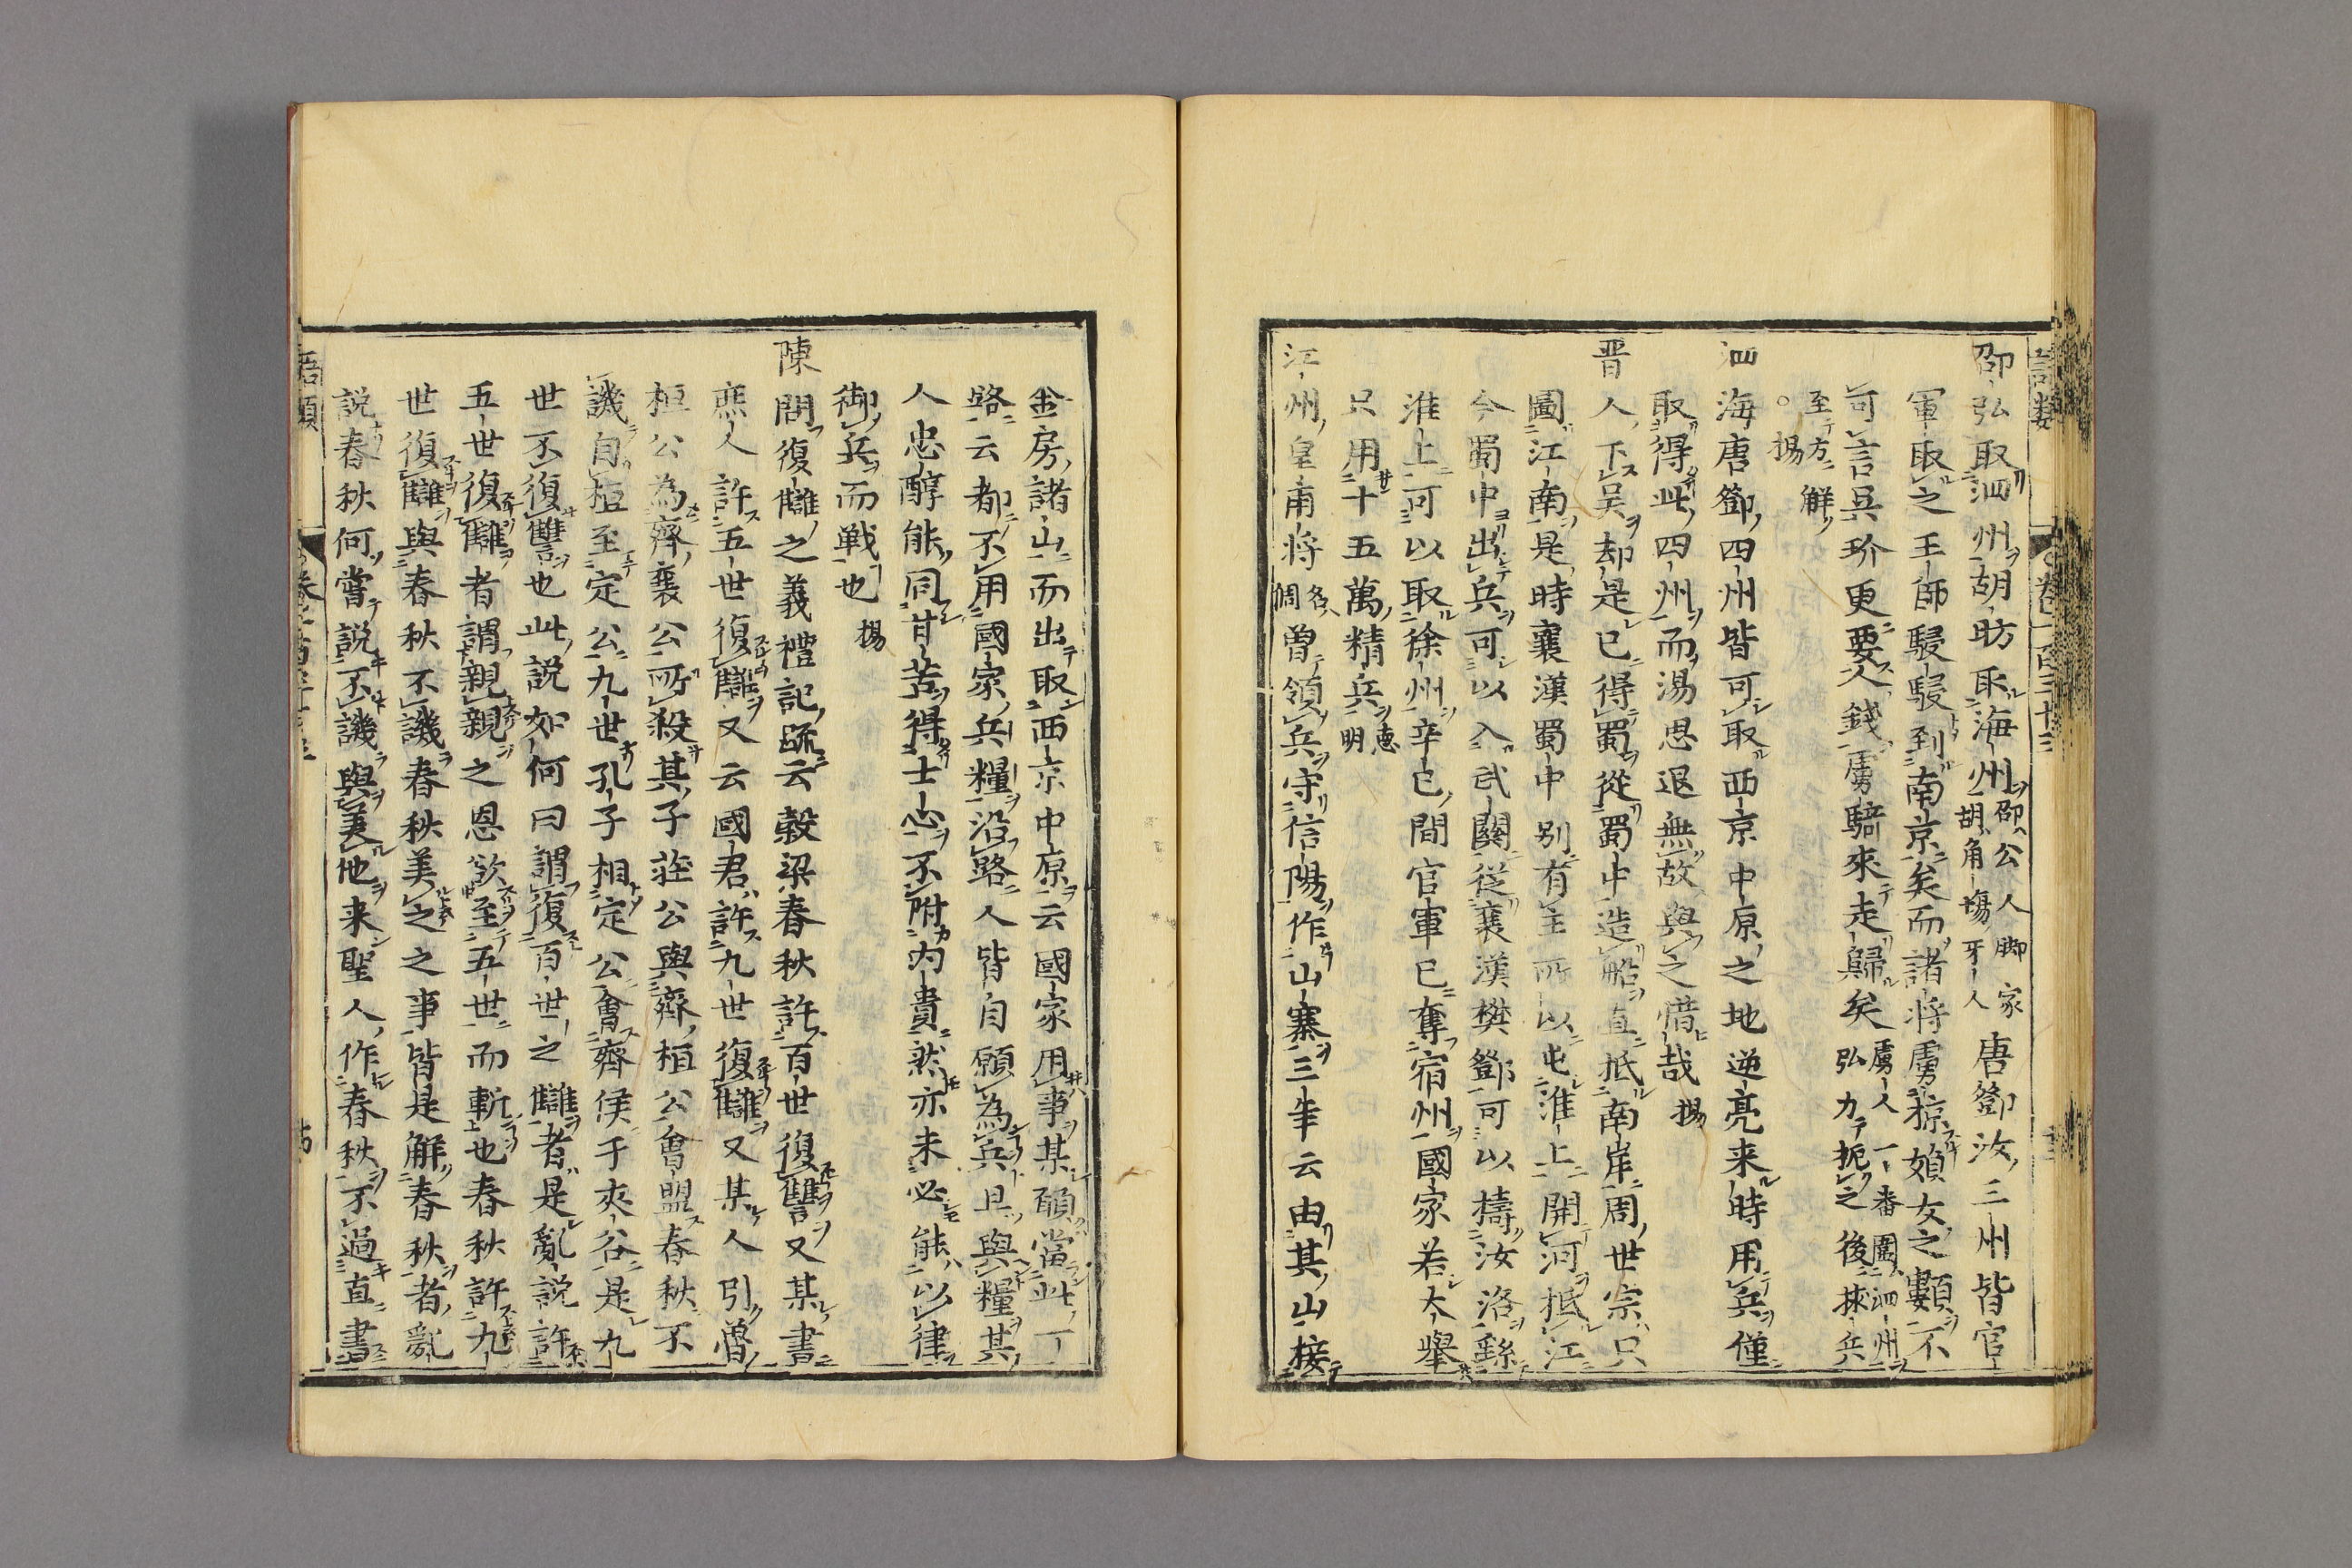 邵弘取泗州胡昉取海州邵公人脚家胡角塲牙人唐鄧汝三州皆官
軍取之王師駸駸到南京矣而諸將虜掠婦女之類不
可言吳玠更要人錢虜騎來走歸矣虜人一番圍泗州弘力扼之後援兵
至方解
○揚
泗海唐鄧四州皆可取西京中原之地逆亮来時用兵僅
取得此四州而湯思退無故與之惜哉揚
晋人下吴却是已得蜀從蜀中造船直抵南岸周世宗只
圖江南是時襄漢蜀中别有主所以屯淮上開河抵江
今蜀中出兵可以入武關從襄漢樊鄧可以擣汝洛繇
淮上可以取徐州辛巳間官軍已奪宿州國家若大舉
只用十五萬精兵德明
江州皇甫將名倜曽領兵守信陽作山寨三年云由其山接
金房諸山而出取西京中原云國家用事某願當此一
路云都不用國家兵糧沿路人皆自願為兵且與糧其
人忠醇能同甘苦得士心不附内貴然亦未必能以律
御兵而戦也揚
陳問復讎之義禮記疏云榖梁春秋許百世復讐又某書
庶人許五世復讎又云國君許九世復讎又某人引魯
桓公為齊襄公所殺其子莊公與齊桓公會盟春秋不
譏自桓至定公九世孔子相定公會齊侯于夾谷是九
世不復讐也此説如何曰謂復百世之讎者是亂説許
五世復讎者謂親親之恩欲至五世而斬也春秋許九
世復讎與春秋不譏春秋美之之事皆是解春秋者亂
説春秋何嘗説不譏與美他来聖人作春秋不過直書